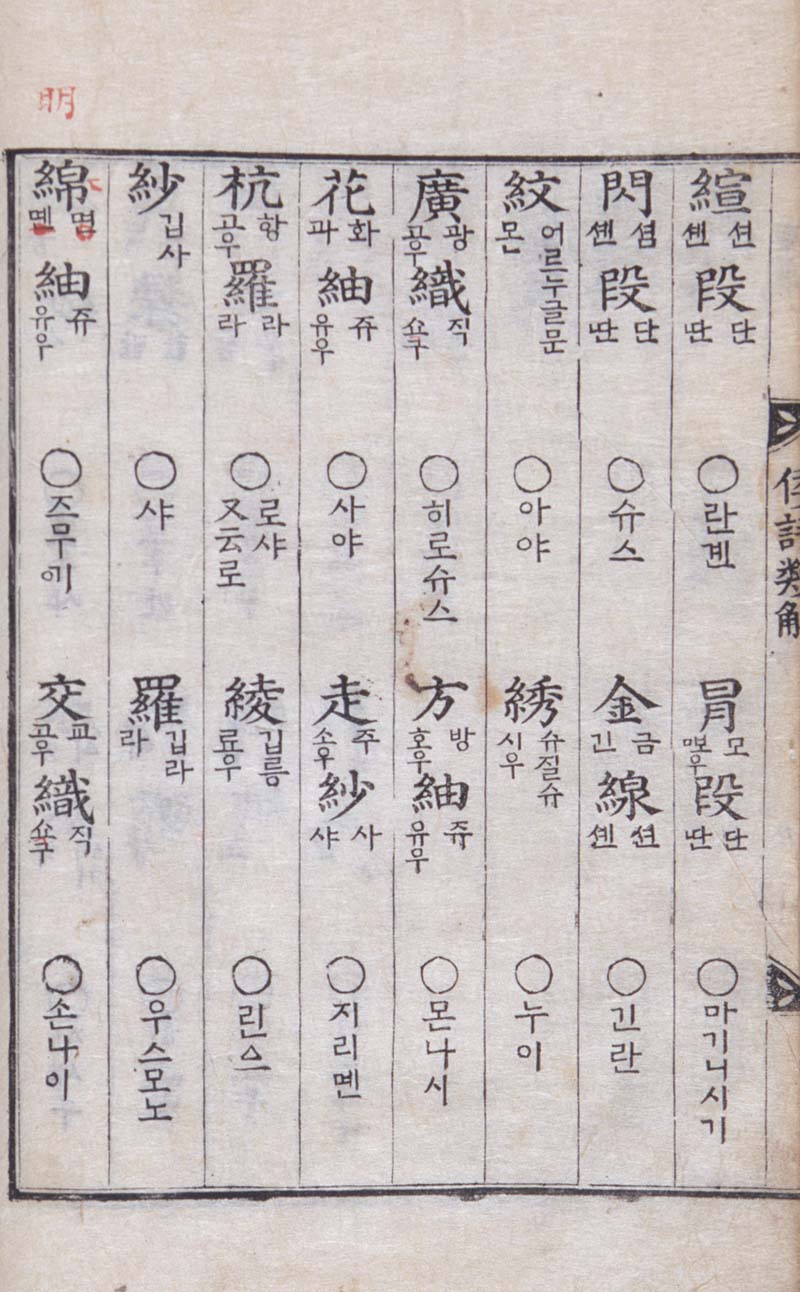 倭語類解
縇션셴段단딴○란겐 冐모段단딴○마기니시기
閃셤셴段단딴○슈스 金금긴線션셴○긴란
紋어르누글문몬○아야 綉슈질슈시우○누이
廣광고우織직쇼구○히로슈스 方방호우紬쥬유우○몬나시
花화과紬쥬유우○사야 走주소우紗사샤○지리멘
杭항고우羅라라○로샤又云로 綾깁릉료우○린스
紗깁사○샤 羅깁라라○우스모노
綿명멘紬쥬유우○즈무기 交교고우織직쇼구○손나이
明